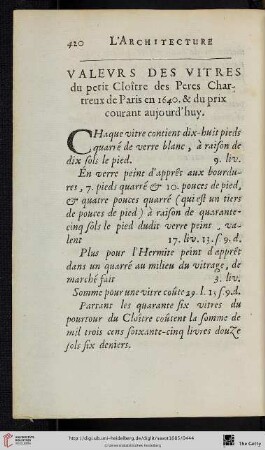 420 L'ARCHITECTURE
VALEVRS DES VITRES
du petit Cloître des Peres Char-
treux de Paris en 1640. & du prix
courant aujourd'huy.
CHaque vitre contient dix-huit pieds
quarré de verre blanc, à raison de
dix sols le pied. 9. liv.
En verre peint d'apprêt aux bourdu-
res, 7. pieds quarré & 10. pouces de pied,
& quatre pouces quarré (qui est un tiers
de pouces de pied) à raison de quarante-
cinq sols le pied dudit verre peint, va-
lent 17. liv. 13. s. 9. d.
Plus pour l'Hermite peint d'apprêt
dans un quarré au milieu du vitrage, de
marché fait 3. liv.
Somme pour une vitre coûte 29. l. 13 s. 9. d.
Partant les quarante six vitres du
pourtour du Cloître coûtent la somme de
mil trois cens soixante-cinq livres douze
sols six deniers.
http://digi.ub.uni-heidelberg.de/diglit/savot1685/0444
© Universitätsbibliothek Heidelberg
The Getty